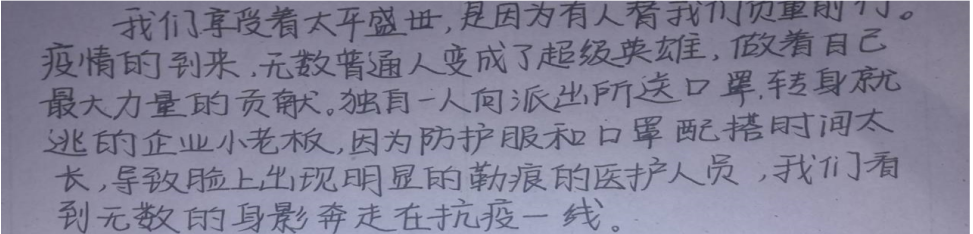 我们享受着太平盛世,是因为有人替我们负重前行。
疫情的到来,无数普通人变成了超级英雄,做着自己
最大力量的贡献。独自一人向派出所送口罩,转身就
逃的企业小老板,因为防护服和口罩配搭时间太
长,导致脸上出现明显的勒痕的医护人员,我们看
到无数的身影奔走在抗疫一线。